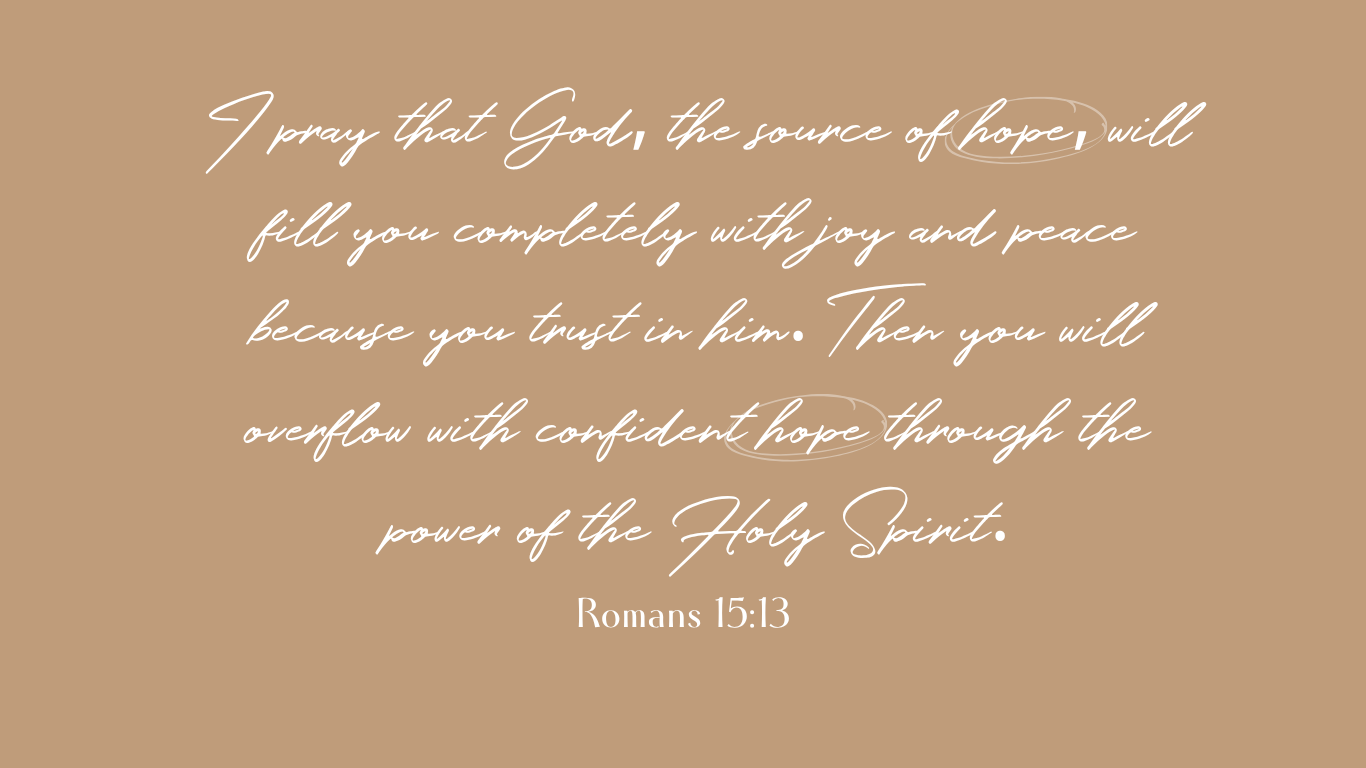 I pray that God, the source of hope, will
fill you completely with joy and peace
because you trust in him. Then you will
overflow with confident hope through the
power of the Holy Spirit.
Romans 15:13